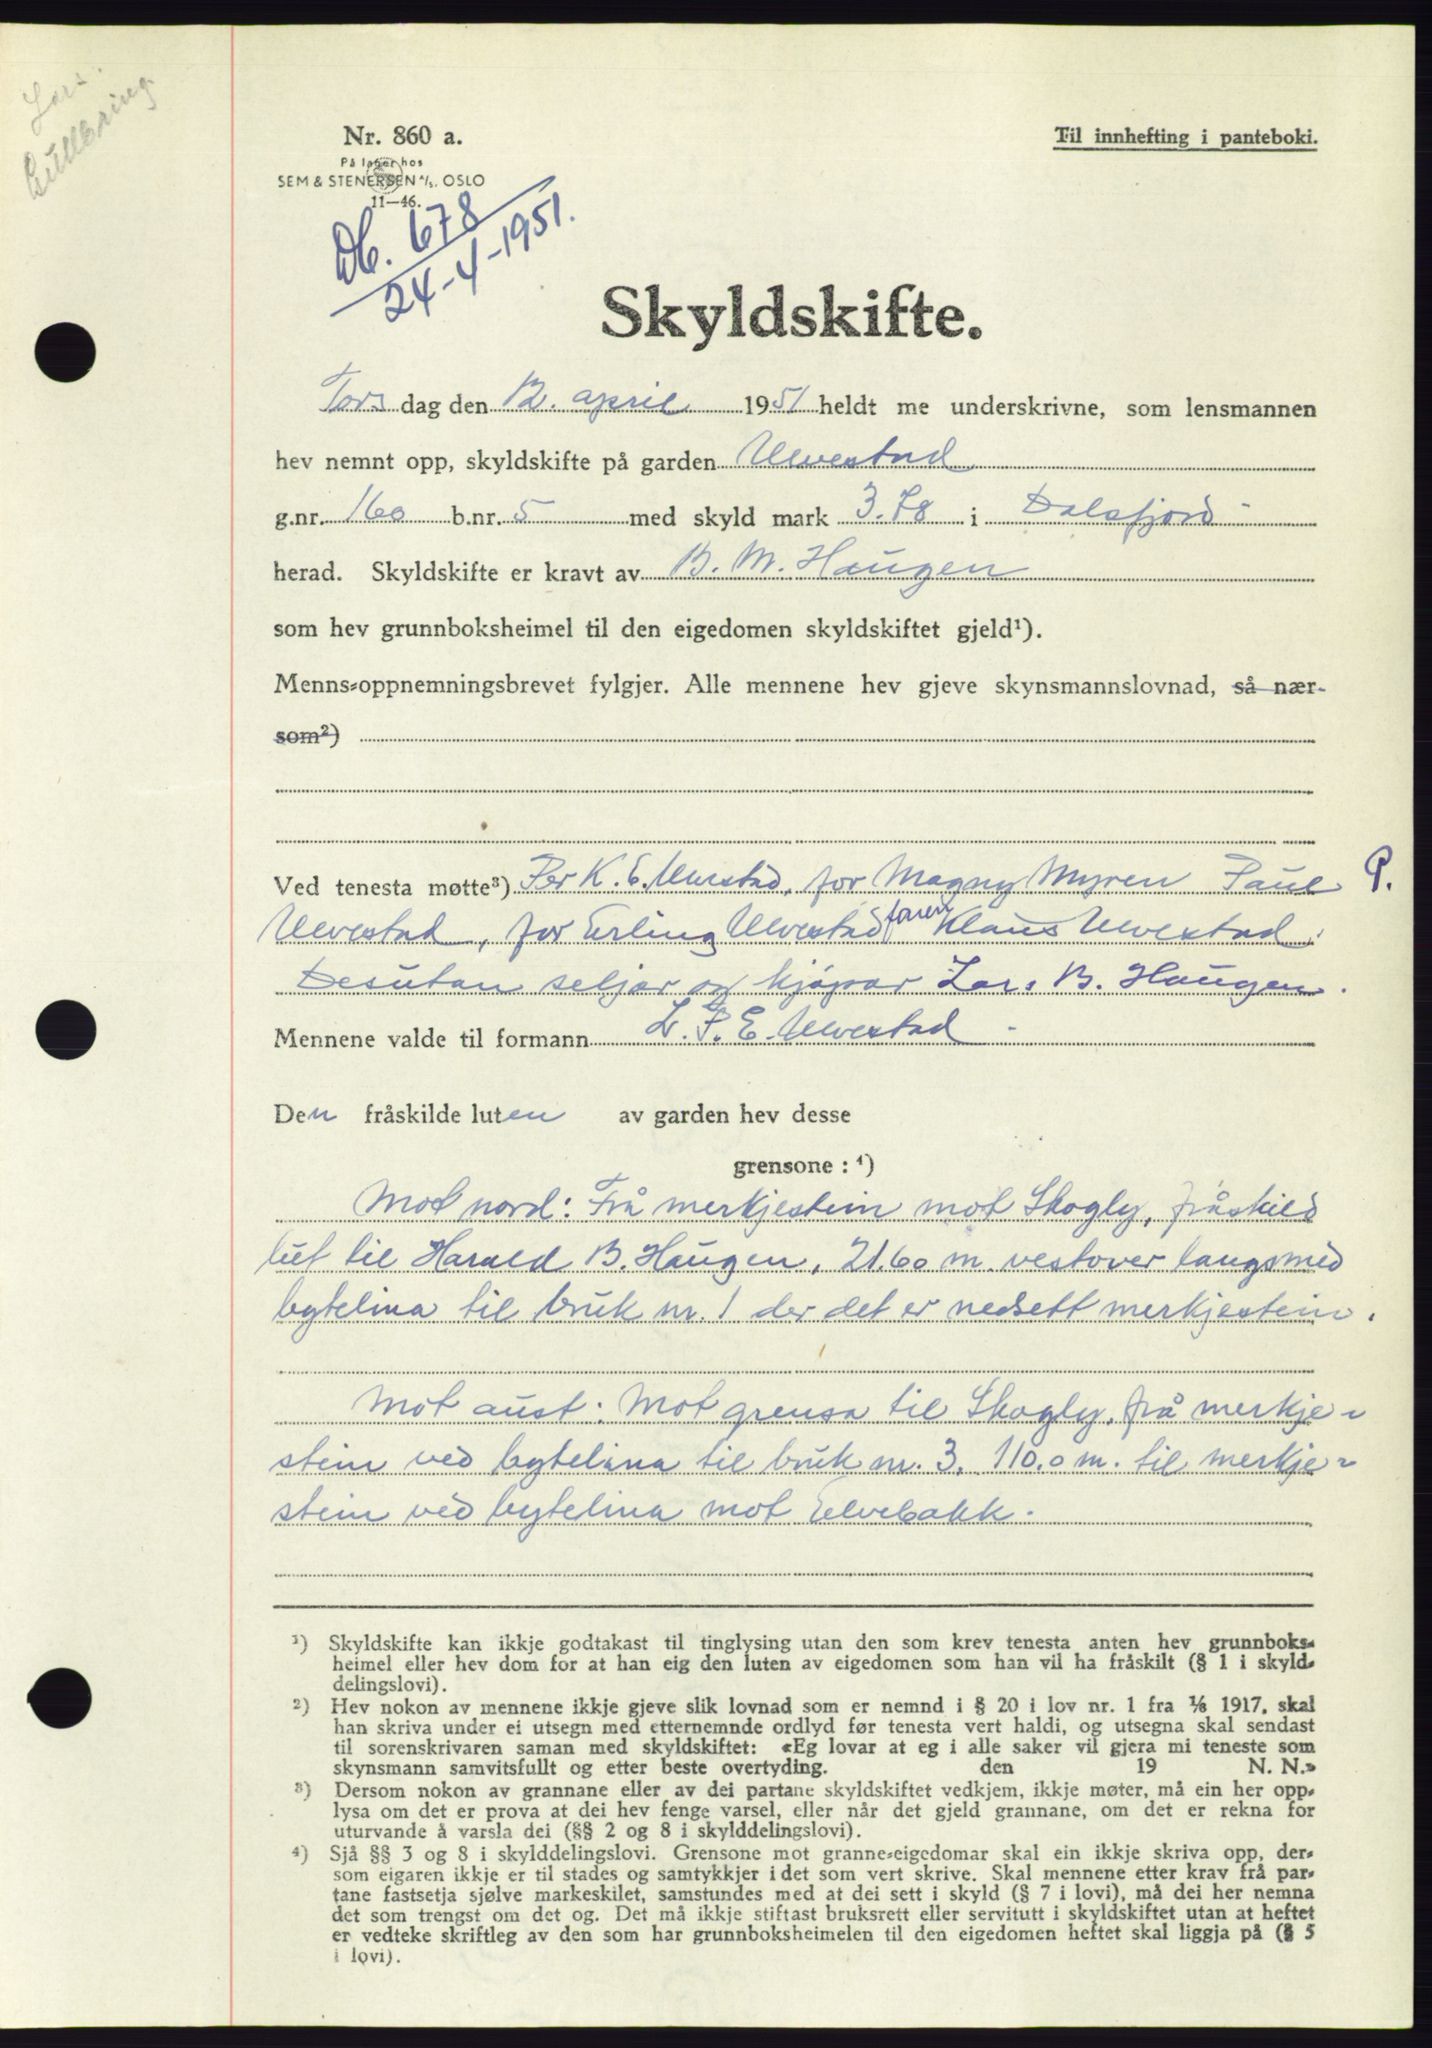 Lars
Nr. 860 a.
Til innhefting i panteboki.
På lager hos
SEM & STENERSEN A/S. OSLO
11—46.
Db. 678
24-4-1951.
Skyldskifte.
Torsdag den 12. april 1951 heldt me underskrivne, som lensmannen
hev nemnt opp, skyldskifte på garden Ulvestad
g.nr. 160 b.nr. 5 med skyld mark 3.78 i Dalsfjord
herad. Skyldskifte er kravt av B. M. Haugen
som hev grunnboksheimel til den eigedomen skyldskiftet gjeld¹).
Menns-oppnemningsbrevet fylgjer. Alle mennene hev gjeve skynsmannslovnad, så nær-
som²)
Ved tenesta møtte³) Per K. E. Ulvestad, for Magny Myren Paul P.
Ulvestad, for Erling Ulvestad faren Klaus Ulvestad.
Desutan seljar og kjøpar Lars B. Haugen.
Mennene valde til formann L. P. E. Ulvestad -
Den fråskilde luten av garden hev desse
grensone : ⁴)
Mot nord: Frå merkjestein mot Skogly, fråskild
lut til Harald B. Haugen, 21.60 m. vestover langsmed
bytelina til bruk nr. 1 der det er nedsett merkjestein.
Mot aust: Mot grensa til Skogly, frå merkje-
stein ved bytelina til bruk nr. 3, 110.0 m. til merkje-
stein ved bytelina mot Elvebakk.
¹) Skyldskifte kan ikkje godtakast til tinglysing utan den som krev tenesta anten hev grunnboks-
heimel eller hev dom for at han eig den luten av eigedomen som han vil ha fråskilt (§ 1 i skyld-
delingslovi).
²) Hev nokon av mennene ikkje gjeve slik lovnad som er nemnd i § 20 i lov nr. 1 fra 1/6 1917, skal
han skriva under ei utsegn med etternemnde ordlyd før tenesta vert haldi, og utsegna skal sendast
til sorenskrivaren saman med skyldskiftet: «Eg lovar at eg i alle saker vil gjera mi teneste som
skynsmann samvitsfullt og etter beste overtyding. den 19 N. N.»
³) Dersom nokon av grannane eller av dei partane skyldskiftet vedkjem, ikkje møter, må ein her opp-
lysa om det er prova at dei hev fenge varsel, eller når det gjeld grannane, om det er rekna for
uturvande å varsla dei (§§ 2 og 8 i skylddelingslovi).
⁴) Sjå §§ 3 og 8 i skylddelingslovi. Grensone mot granne-eigedomar skal ein ikkje skriva opp, der-
som eigaren ikkje er til stades og samtykkjer i det som vert skrive. Skal mennene etter krav frå par-
tane fastsetja sjølve markeskilet, samstundes med at dei sett i skyld (§ 7 i lovi), må dei her nemna
det som trengst om det og. Det må ikkje stiftast bruksrett eller servitutt i skyldskiftet utan at heftet
er vedteke skriftleg av den som har grunnboksheimelen til den eigedomen heftet skal liggja på (§ 5
i lovi).